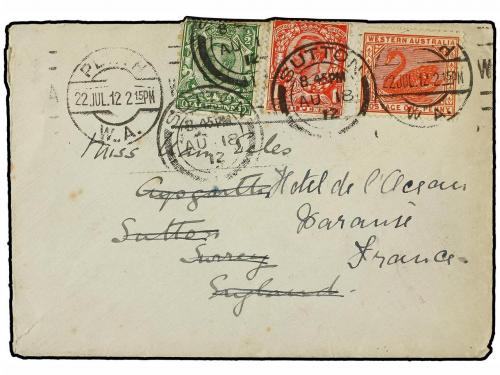 WESTERN AUSTRALIA
2
PERTH
22 JUL.12 2 15PM
W.A.
SUTTON
8.45PM
AU 18
12
8.45PM
AU 18
12
22 JUL.12 2 15PM
W.A.
Miss
Hotel de l'Ocean
Sutton
Surrey France
England